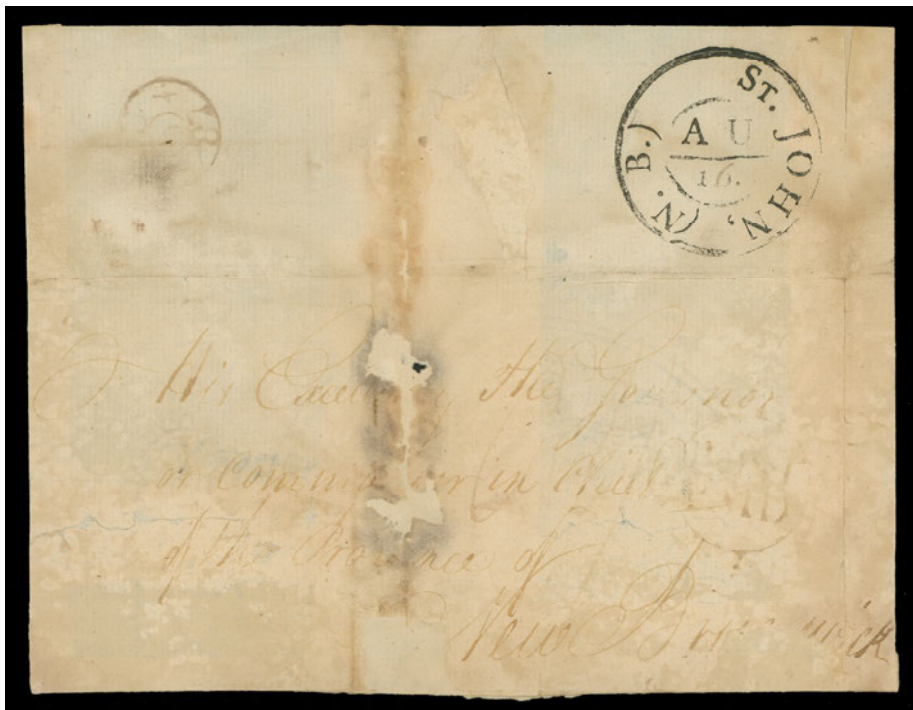 St. JOHN, (N. B.)
AU
16.
His Excellency the Governor
or Commander in Chief
of the Province of
New Brunswick